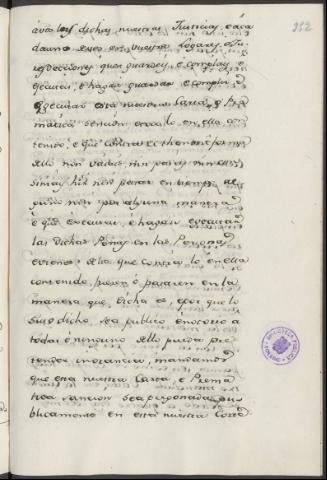 352
avos las dichas nuestras Justicias, e a cada
da uno de vos en vuestros Logares, e Ju-
resdicciones que guardeys, e cumplays, e
gecuteis, e hagais guardar e complir, e
egecutar esta nuestra Carta, e Pra-
matica sencion en todo, en ella con-
tenido, e que contra el thenor e forma
dello non vades nin paseis nin con-
sintays hir nin pasar en tiempo al-
guno nin por alguna manera
e que executeis, e hagais executar
las dichas Penas en las Personas
e vienes, dellos que contra lo en ella
contenido, fueren ó pasaren en la
manera que dicha es, e por que lo
suso dicho, sea publico e notorio a
todos e ninguno dello pueda pre-
tender ignorancia, mandamos
que esta nuestra Carta, e Prema
tica sancion sea pregonada pu-
blicamente en esta nuestra Corte